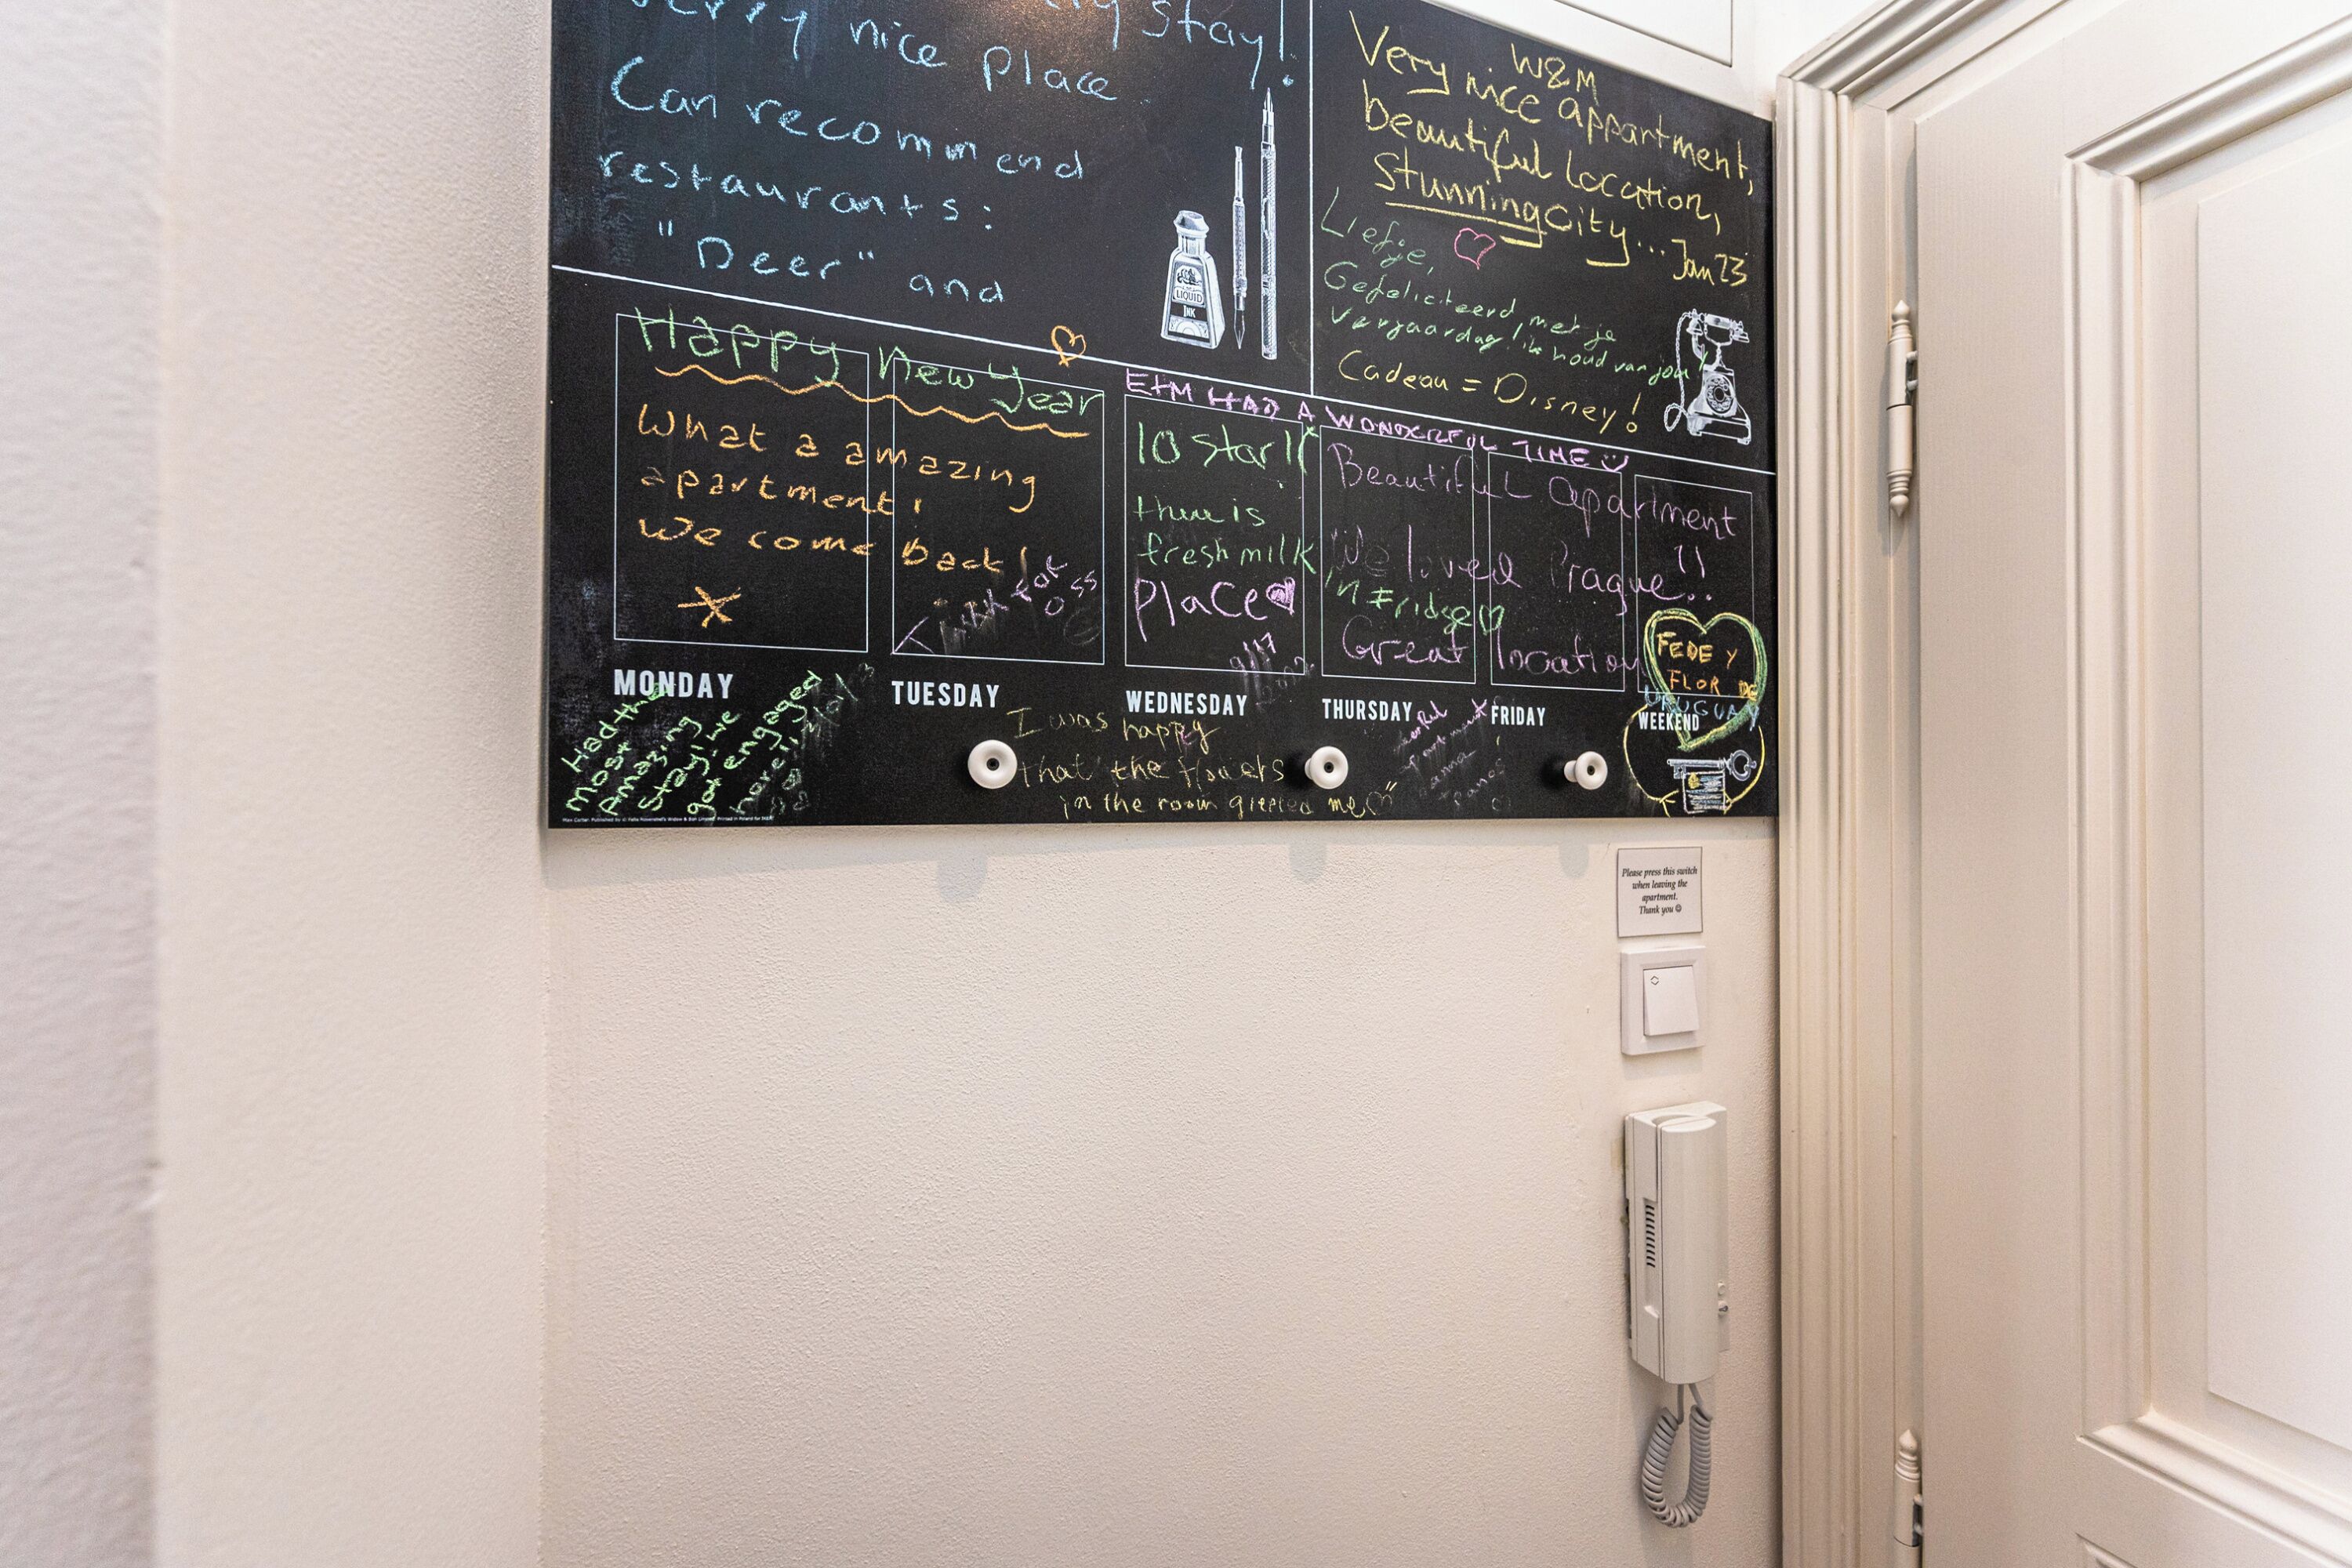 stay!
very nice place
Can recommend
restaurants:
"Deer" and
LIQUID
INK
W&M
Very nice appartment,
beautiful location,
stunning city... Jan 23
Liefje,
Gefeliciteerd met je
verjaardag! ik houd van jou!
Cadeau = Disney!
Happy New Year
What a amazing
apartment!
We come back!
E+M HAD A WONDERFUL TIME
10 star
there is
fresh milk
in Fridge
Place
Beautiful apartment
We loved Prague!!
Great location
FEDE Y
FLOR DE
URUGUAY
MONDAY
TUESDAY
WEDNESDAY
THURSDAY
FRIDAY
WEEKEND
Had the
most
Amazing
stay! we
got engaged
here!!
I was happy
that the flowers
in the room greeted me
Please press this switch
when leaving the
apartment.
Thank you ☺